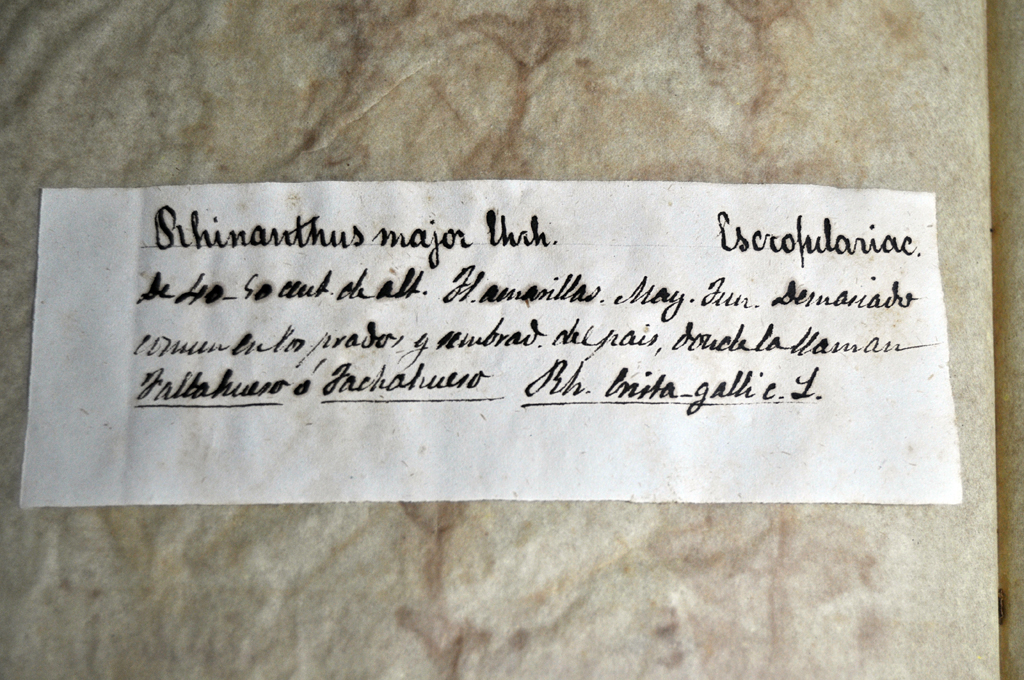 Rhinanthus major Ehrh. Escrofulariac.
De 40-50 cent. de alt. Fl. amarillas. May. Jun. Demasiado
comun en los prados y sembrad. del pais, donde la llaman
Fallahueso ó Fachahueso Rh. Crista-galli c. L.